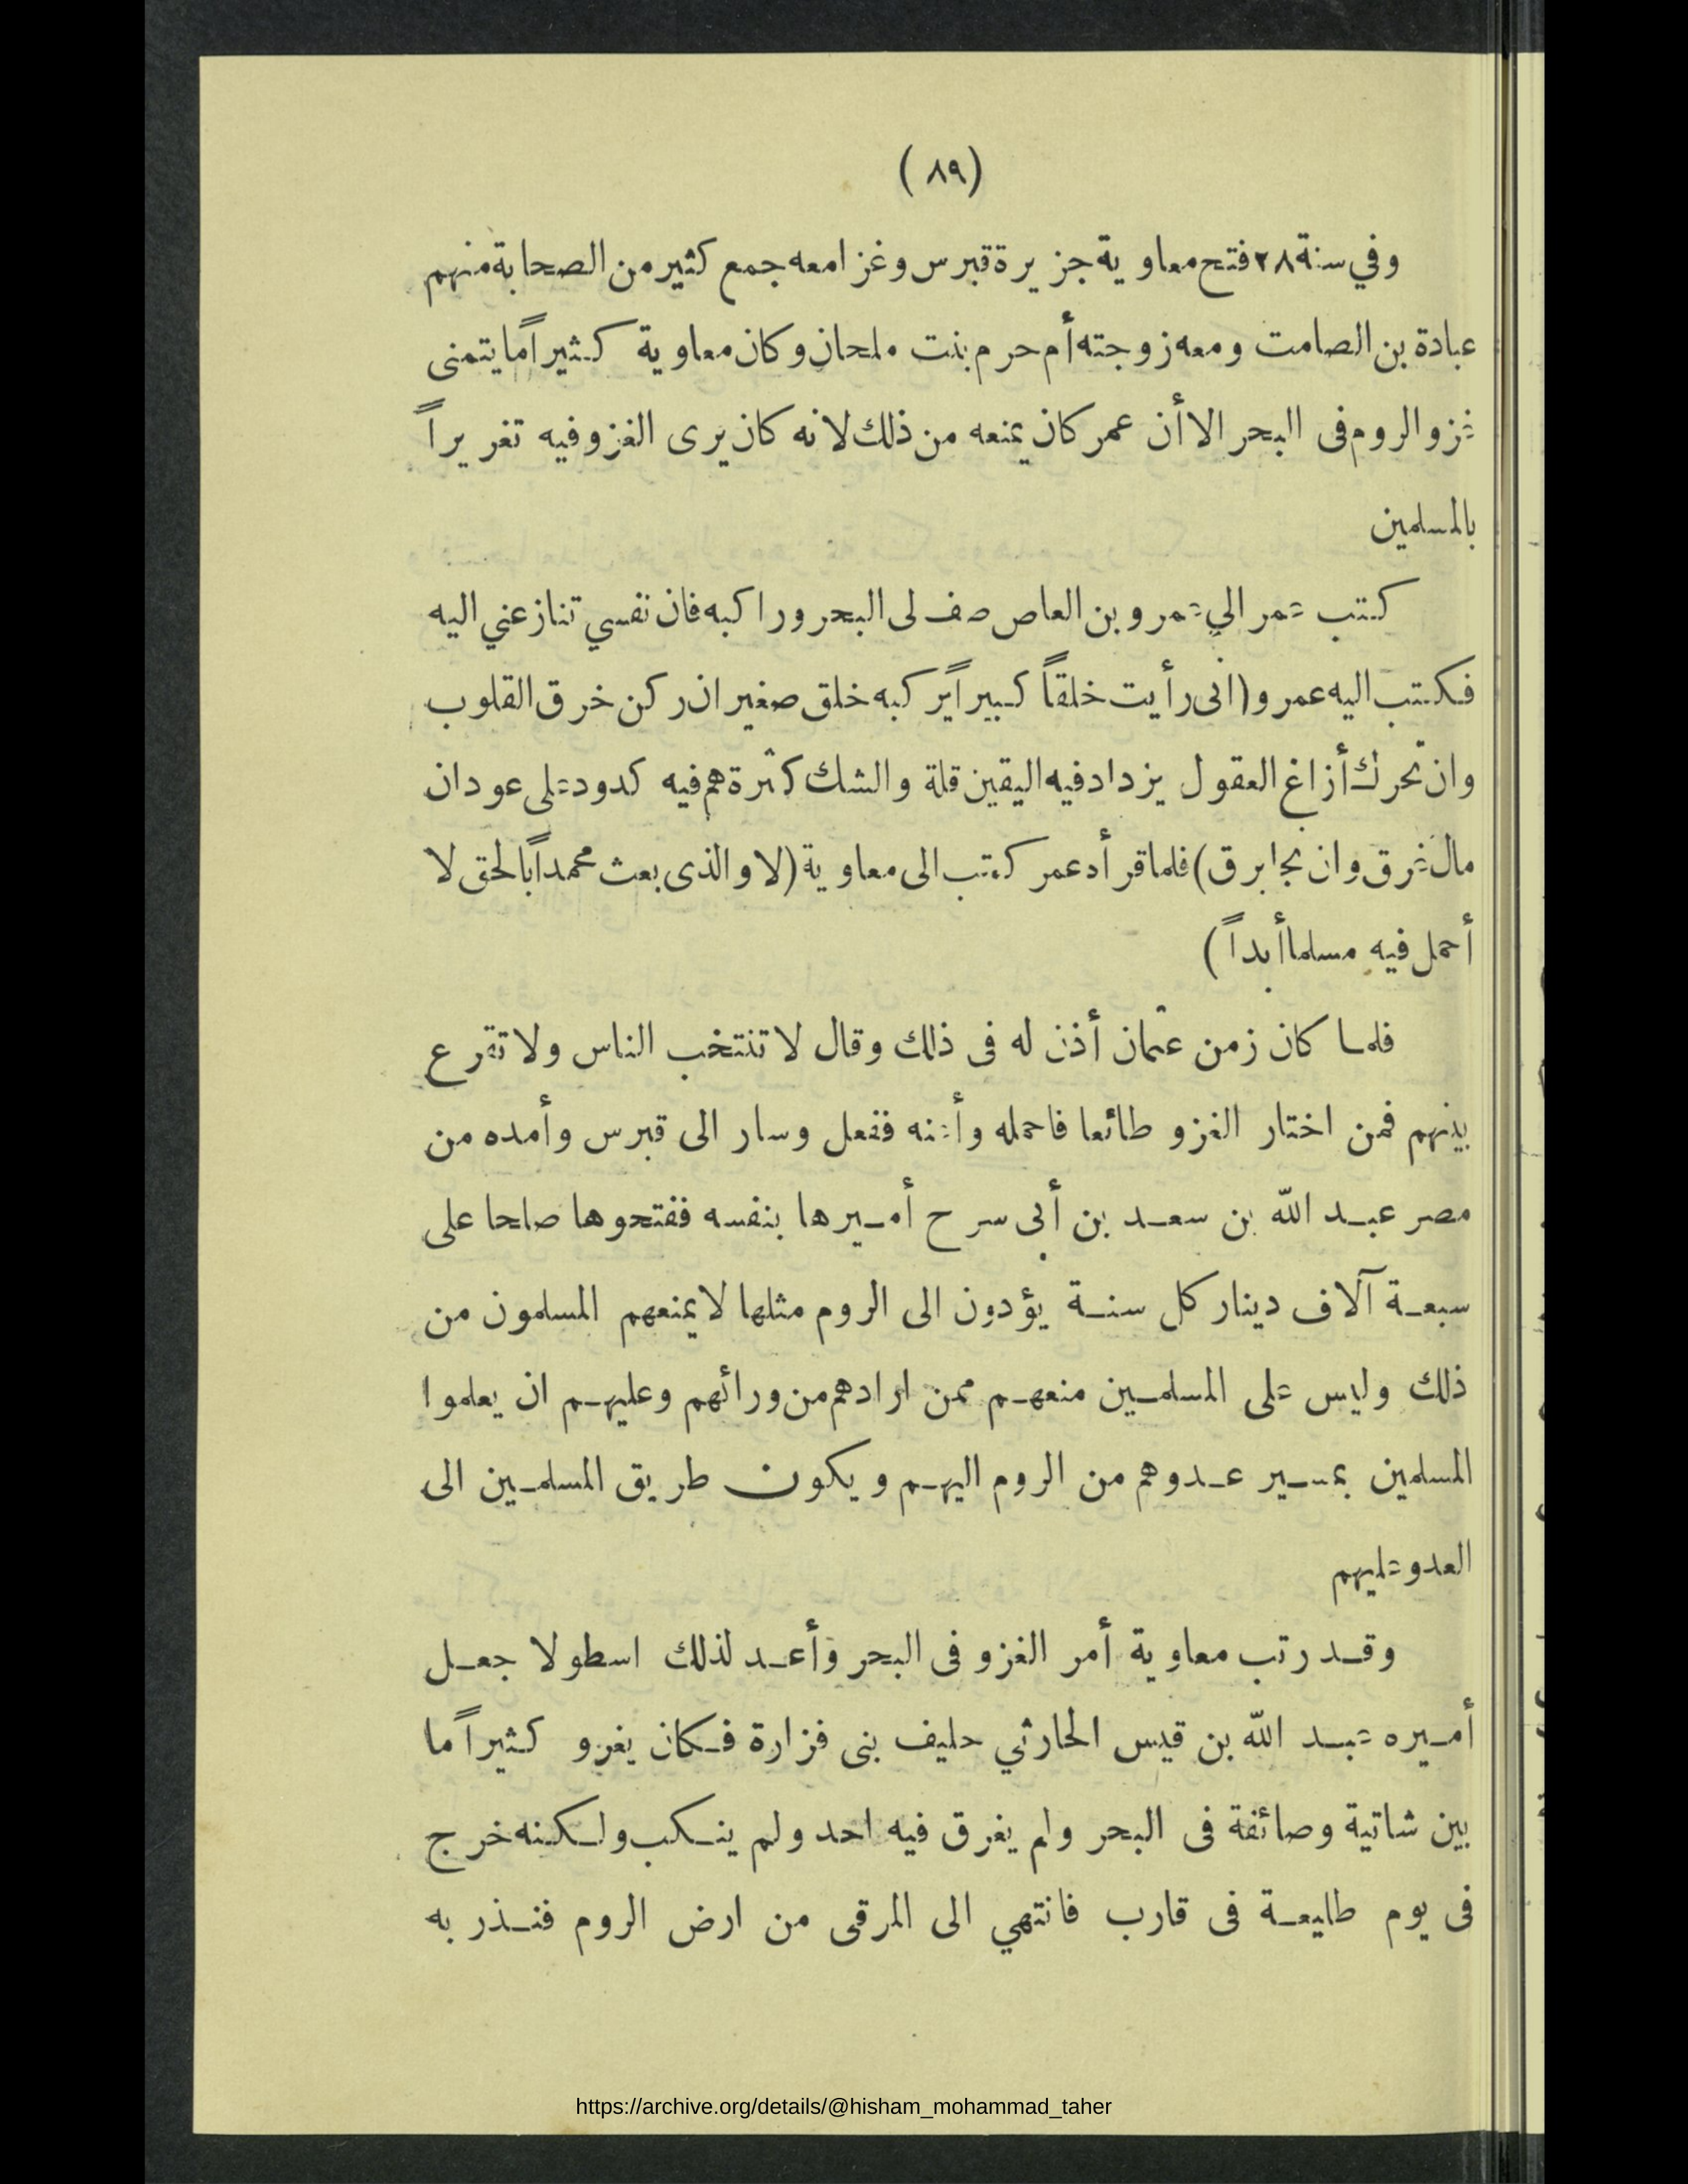 (٨٩)
وفي سنة ٢٨ فتح معاوية جزيرة قبرس وغزا معه جمع كثير من الصحابة منهم
عبادة بن الصامت ومعه زوجته أم حرم بنت ملحان وكان معاوية كثيراً ما يتمنى
غزو الروم فى البحر الا أن عمر كان يمنعه من ذلك لانه كان يرى الغزو فيه تغريراً
بالمسلمين
كتب عمر الي عمرو بن العاص صف لى البحر وراكبه فان نفسي تنازعني اليه
فكتب اليه عمرو (انى رأيت خلقاً كبيراً يركبه خلق صغير ان ركن خرق القلوب
وان تحرك أزاغ العقول يزداد فيه اليقين قلة والشك كثرة هم فيه كدود على عود ان
مال غرق وان نجا برق) فلما قرأه عمر كتب الى معاوية (لا والذى بعث محمداً بالحق لا
أحمل فيه مسلما أبداً)
فلما كان زمن عثمان أذن له فى ذلك وقال لا تنتخب الناس ولا تقرع
بينهم فمن اختار الغزو طائعا فاحمله وأعنه ففعل وسار الى قبرس وأمده من
مصر عبد الله بن سعد بن أبى سرح أميرها بنفسه ففتحوها صلحا على
سبعة آلاف دينار كل سنة يؤدون الى الروم مثلها لا يمنعهم المسلمون من
ذلك وليس على المسلمين منعهم ممن ارادهم من ورائهم وعليهم ان يعلموا
المسلمين بمسير عدوهم من الروم اليهم ويكون طريق المسلمين الى
العدو عليهم
وقد رتب معاوية أمر الغزو فى البحر وأعد لذلك اسطولا جعل
أميره عبد الله بن قيس الحارثي حليف بنى فزارة فكان يغزو كثيراً ما
بين شاتية وصائفة فى البحر ولم يغرق فيه احد ولم ينكب ولكنه خرج
فى يوم طليعة فى قارب فانتهي الى المرقى من ارض الروم فنذر به
https://archive.org/details/@hisham_mohammad_taher